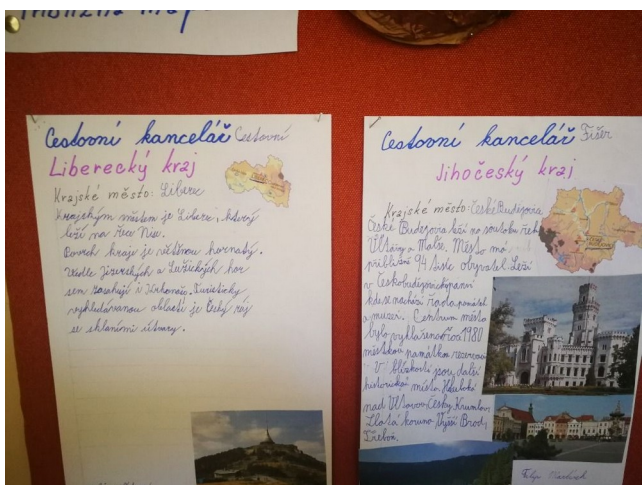 Cestovní kancelář Cestovní
Liberecký kraj
Krajské město: Liberec
Krajským městem je Liberec, který
leží na řece Nise.
Povrch kraje je většinou hornatý.
Vedle Jizerských a Lužických hor
sem zasahují i Krkonoše. Turisticky
vyhledávanou oblastí je Český ráj
se skalními útvary.
Cestovní kancelář Fišer
Jihočeský kraj
Krajské město: České Budějovice
České Budějovice leží na soutoku řek
Vltavy a Malše. Město má
přibližně 94 tisíc obyvatel. Leží
v Českobudějovické pánvi
kde se nachází řada památek
a muzeí. Centrum města
bylo vyhlášeno roku 1980
městskou památkou rezervací
V blízkosti jsou další
historická místa Hluboká
nad Vltavou, Český Krumlov,
Zlatá koruna Vyšší Brod,
Třeboň.
Filip